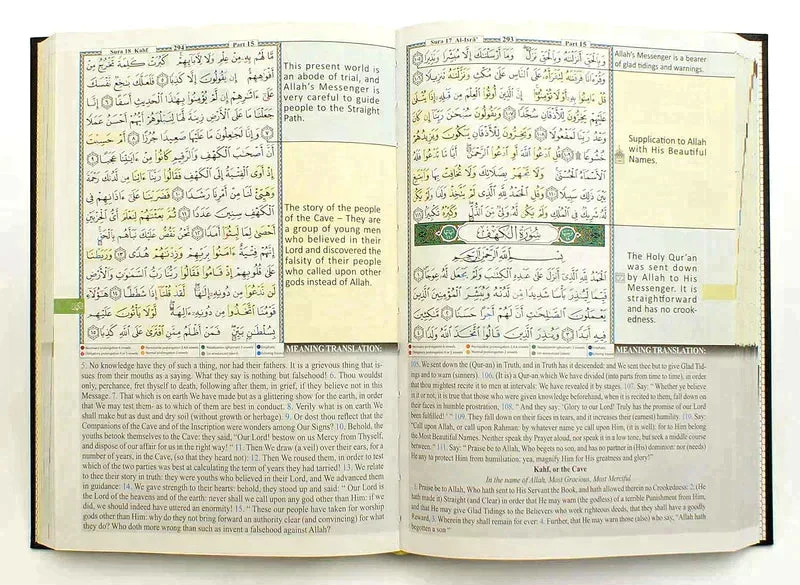 Sura 17 Al-Isrâ' 293 Part 15
وَبِالْحَقِّ أَنزَلْنَاهُ وَبِالْحَقِّ نَزَلَ وَمَا أَرْسَلْنَاكَ إِلَّا مُبَشِّرًا وَنَذِيرًا ١٠٥
وَقُرْءَانًا فَرَقْنَاهُ لِتَقْرَأَهُ عَلَى النَّاسِ عَلَىٰ مُكْثٍ وَنَزَّلْنَاهُ تَنزِيلًا ١٠٦
قُلْ ءَامِنُوا بِهِ أَوْ لَا تُؤْمِنُوا إِنَّ الَّذِينَ أُوتُوا الْعِلْمَ مِن قَبْلِهِ إِذَا يُتْلَىٰ
عَلَيْهِمْ يَخِرُّونَ لِلْأَذْقَانِ سُجَّدًا ١٠٧ وَيَقُولُونَ سُبْحَانَ رَبِّنَا إِن كَانَ
وَعْدُ رَبِّنَا لَمَفْعُولًا ١٠٨ وَيَخِرُّونَ لِلْأَذْقَانِ يَبْكُونَ وَيَزِيدُهُمْ
خُشُوعًا ١٠٩ قُلِ ادْعُوا اللَّهَ أَوِ ادْعُوا الرَّحْمَٰنَ أَيًّا مَّا تَدْعُوا فَلَهُ
الْأَسْمَاءُ الْحُسْنَىٰ وَلَا تَجْهَرْ بِصَلَاتِكَ وَلَا تُخَافِتْ بِهَا وَابْتَغِ
بَيْنَ ذَٰلِكَ سَبِيلًا ١١٠ وَقُلِ الْحَمْدُ لِلَّهِ الَّذِي لَمْ يَتَّخِذْ وَلَدًا وَلَمْ يَكُن
لَّهُ شَرِيكٌ فِي الْمُلْكِ وَلَمْ يَكُن لَّهُ وَلِيٌّ مِّنَ الذُّلِّ وَكَبِّرْهُ تَكْبِيرًا ١١١
سُورَةُ الْكَهْفِ
بِسْمِ اللَّهِ الرَّحْمَٰنِ الرَّحِيمِ
الْحَمْدُ لِلَّهِ الَّذِي أَنزَلَ عَلَىٰ عَبْدِهِ الْكِتَابَ وَلَمْ يَجْعَل لَّهُ عِوَجًا ١
قَيِّمًا لِّيُنذِرَ بَأْسًا شَدِيدًا مِّن لَّدُنْهُ وَيُبَشِّرَ الْمُؤْمِنِينَ الَّذِينَ
يَعْمَلُونَ الصَّالِحَاتِ أَنَّ لَهُمْ أَجْرًا حَسَنًا ٢ مَّاكِثِينَ
فِيهِ أَبَدًا ٣ وَيُنذِرَ الَّذِينَ قَالُوا اتَّخَذَ اللَّهُ وَلَدًا ٤
Allah's Messenger is a bearer
of glad tidings and warnings.
Supplication to Allah
with His Beautiful
Names.
The Holy Qur'an
was sent down
by Allah to His
Messenger. It is
straightforward
and has no crook-
edness.
MEANING TRANSLATION:
105. We sent down the (Qur-an) in Truth, and in Truth has it descended: and We sent thee but to give Glad Tid-
ings and to warn (sinners). 106. (It is) a Qur-an which We have divided (into parts from time to time), in order
that thou mightest recite it to men at intervals: We have revealed it by stages. 107. Say: "Whether ye believe
in it or not, it is true that those who were given knowledge beforehand, when it is recited to them, fall down on
their faces in humble prostration, 108. "And they say: 'Glory to our Lord! Truly has the promise of our Lord
been fulfilled!' " 109. They fall down on their faces in tears, and it increases their (earnest) humility. 110. Say:
"Call upon Allah, or call upon Rahman: by whatever name ye call upon Him, (it is well): for to Him belong
the Most Beautiful Names. Neither speak thy Prayer aloud, nor speak it in a low tone, but seek a middle course
between." 111. Say: "Praise be to Allah, Who begets no son, and has no partner in (His) dominion: nor (needs)
He any to protect Him from humiliation: yea, magnify Him for His greatness and glory!"
Kahf, or the Cave
In the name of Allah, Most Gracious, Most Merciful
1. Praise be to Allah, Who hath sent to His Servant the Book, and hath allowed therein no Crookedness: 2. (He
hath made it) Straight (and Clear) in order that He may warn (the godless) of a terrible Punishment from Him,
and that He may give Glad Tidings to the Believers who work righteous deeds, that they shall have a goodly
Reward, 3. Wherein they shall remain for ever: 4. Further, that He may warn those (also) who say, "Allah hath
begotten a son":
Sura 18 Kahf 294 Part 15
مَّا لَهُم بِهِ مِنْ عِلْمٍ وَلَا لِآبَائِهِمْ كَبُرَتْ كَلِمَةً تَخْرُجُ مِنْ
أَفْوَاهِهِمْ إِن يَقُولُونَ إِلَّا كَذِبًا ٥ فَلَعَلَّكَ بَاخِعٌ نَّفْسَكَ
عَلَىٰ ءَاثَارِهِمْ إِن لَّمْ يُؤْمِنُوا بِهَٰذَا الْحَدِيثِ أَسَفًا ٦ إِنَّا
جَعَلْنَا مَا عَلَى الْأَرْضِ زِينَةً لَّهَا لِنَبْلُوَهُمْ أَيُّهُمْ أَحْسَنُ عَمَلًا
٧ وَإِنَّا لَجَاعِلُونَ مَا عَلَيْهَا صَعِيدًا جُرُزًا ٨ أَمْ حَسِبْتَ
أَنَّ أَصْحَابَ الْكَهْفِ وَالرَّقِيمِ كَانُوا مِنْ ءَايَاتِنَا عَجَبًا ٩
إِذْ أَوَى الْفِتْيَةُ إِلَى الْكَهْفِ فَقَالُوا رَبَّنَا ءَاتِنَا مِن لَّدُنكَ رَحْمَةً
وَهَيِّئْ لَنَا مِنْ أَمْرِنَا رَشَدًا ١٠ فَضَرَبْنَا عَلَىٰ ءَاذَانِهِمْ فِي
الْكَهْفِ سِنِينَ عَدَدًا ١١ ثُمَّ بَعَثْنَاهُمْ لِنَعْلَمَ أَيُّ الْحِزْبَيْنِ
أَحْصَىٰ لِمَا لَبِثُوا أَمَدًا ١٢ نَّحْنُ نَقُصُّ عَلَيْكَ نَبَأَهُم بِالْحَقِّ
إِنَّهُمْ فِتْيَةٌ ءَامَنُوا بِرَبِّهِمْ وَزِدْنَاهُمْ هُدًى ١٣ وَرَبَطْنَا
عَلَىٰ قُلُوبِهِمْ إِذْ قَامُوا فَقَالُوا رَبُّنَا رَبُّ السَّمَاوَاتِ وَالْأَرْضِ
لَن نَّدْعُوَ مِن دُونِهِ إِلَٰهًا لَّقَدْ قُلْنَا إِذًا شَطَطًا ١٤ هَٰؤُلَاءِ
قَوْمُنَا اتَّخَذُوا مِن دُونِهِ ءَالِهَةً لَّوْلَا يَأْتُونَ عَلَيْهِم
بِسُلْطَانٍ بَيِّنٍ فَمَنْ أَظْلَمُ مِمَّنِ افْتَرَىٰ عَلَى اللَّهِ كَذِبًا ١٥
This present world is
an abode of trial, and
Allah's Messenger is
very careful to guide
people to the Straight
Path.
The story of the people
of the Cave – They are
a group of young men
who believed in their
Lord and discovered the
falsity of their people
who called upon other
gods instead of Allah.
MEANING TRANSLATION:
5. No knowledge have they of such a thing, nor had their fathers. It is a grievous thing that is-
sues from their mouths as a saying. What they say is nothing but falsehood! 6. Thou wouldst
only, perchance, fret thyself to death, following after them, in grief, if they believe not in this
Message. 7. That which is on earth We have made but as a glittering show for the earth, in order
that We may test them- as to which of them are best in conduct. 8. Verily what is on earth We
shall make but as dust and dry soil (without growth or herbage). 9. Or dost thou reflect that the
Companions of the Cave and of the Inscription were wonders among Our Signs? 10. Behold, the
youths betook themselves to the Cave: they said, "Our Lord! bestow on us Mercy from Thyself,
and dispose of our affair for us in the right way!" 11. Then We draw (a veil) over their ears, for a
number of years, in the Cave, (so that they heard not): 12. Then We roused them, in order to test
which of the two parties was best at calculating the term of years they had tarried! 13. We relate
to thee their story in truth: they were youths who believed in their Lord, and We advanced them
in guidance: 14. We gave strength to their hearts: behold, they stood up and said: " Our Lord is
the Lord of the heavens and of the earth: never shall we call upon any god other than Him: if we
did, we should indeed have uttered an enormity! 15. " These our people have taken for worship
gods other than Him: why do they not bring forward an authority clear (and convincing) for what
they do? Who doth more wrong than such as invent a falsehood against Allah?